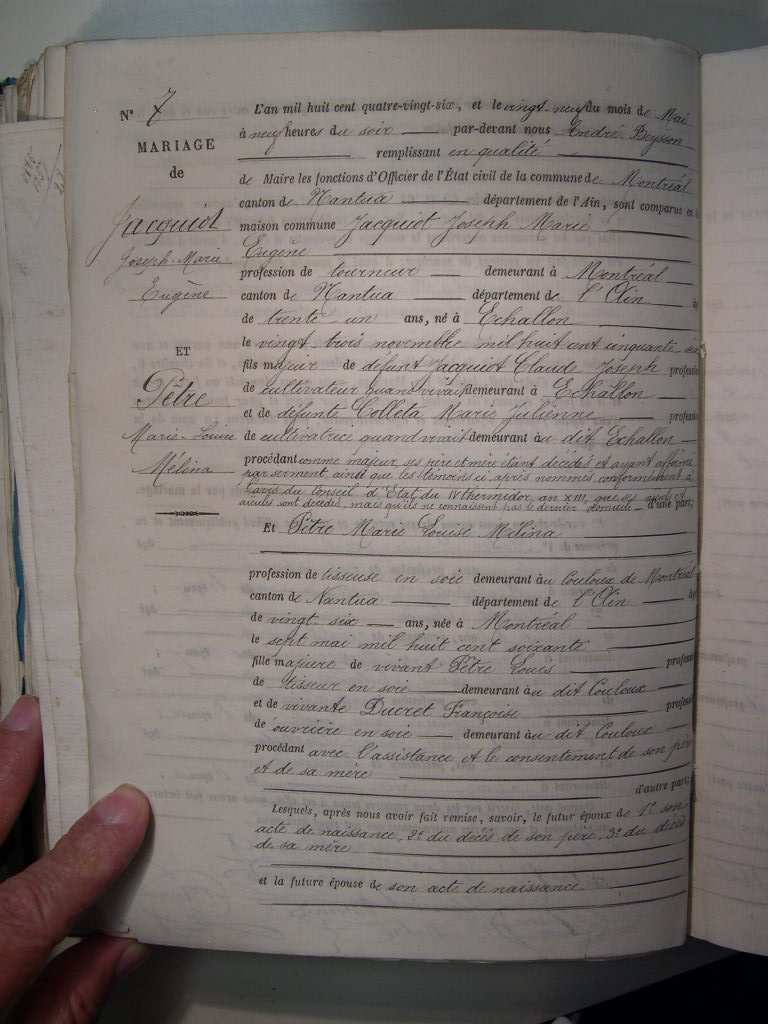 N° 7
MARIAGE
de
Jacquiot
Joseph-Marie
Eugène
ET
Pêtre
Marie-Louise
Mélina
L'an mil huit cent quatre-vingt-six, et le vingt-neuf du mois de Mai
à neuf heures du soir par-devant nous André Beysson
remplissant en qualité
de Maire les fonctions d'Officier de l'État civil de la commune de Montréal
canton de Nantua département de l'Ain, sont comparus en
maison commune Jacquiot Joseph Marie
Eugène
profession de tourneur demeurant à Montréal
canton de Nantua département de l'Ain
de trente-un ans, né à Echallon
le vingt-trois novembre mil huit cent cinquante
fils majeur de défunt Jacquiot Claude Joseph profession
de cultivateur quand vivait demeurant à Echallon
et de défunte Colleta Marie Julienne profession
de cultivatrice quand vivait demeurant au dit Echallon
procédant comme majeur, ses père et mère étant décédés et ayant affirmé
par serment, ainsi que les témoins ci-après nommés, conformément à
l'avis du Conseil d'Etat du IV thermidor, an XIII, que ses
aïeules sont décédés, mais qu'ils ne connaissent pas le dernier domicile d'une part;
Et Pêtre Marie Louise Mélina
profession de tisseuse en soie demeurant au Couloux de Montréal
canton de Nantua département de l'Ain
de vingt-six ans, née à Montréal
le sept mai mil huit cent soixante
fille majeure de vivant Pêtre Louis profession
de tisseur en soie demeurant au dit Couloux
et de vivante Ducret Françoise profession
de ouvrière en soie demeurant au dit Couloux
procédant avec l'assistance et le consentement de son père
et de sa mère
d'autre part;
Lesquels, après nous avoir fait remise, savoir, le futur époux de 1° son
acte de naissance, 2° du décès de son père, 3° du décès
de sa mère
et la future épouse de son acte de naissance